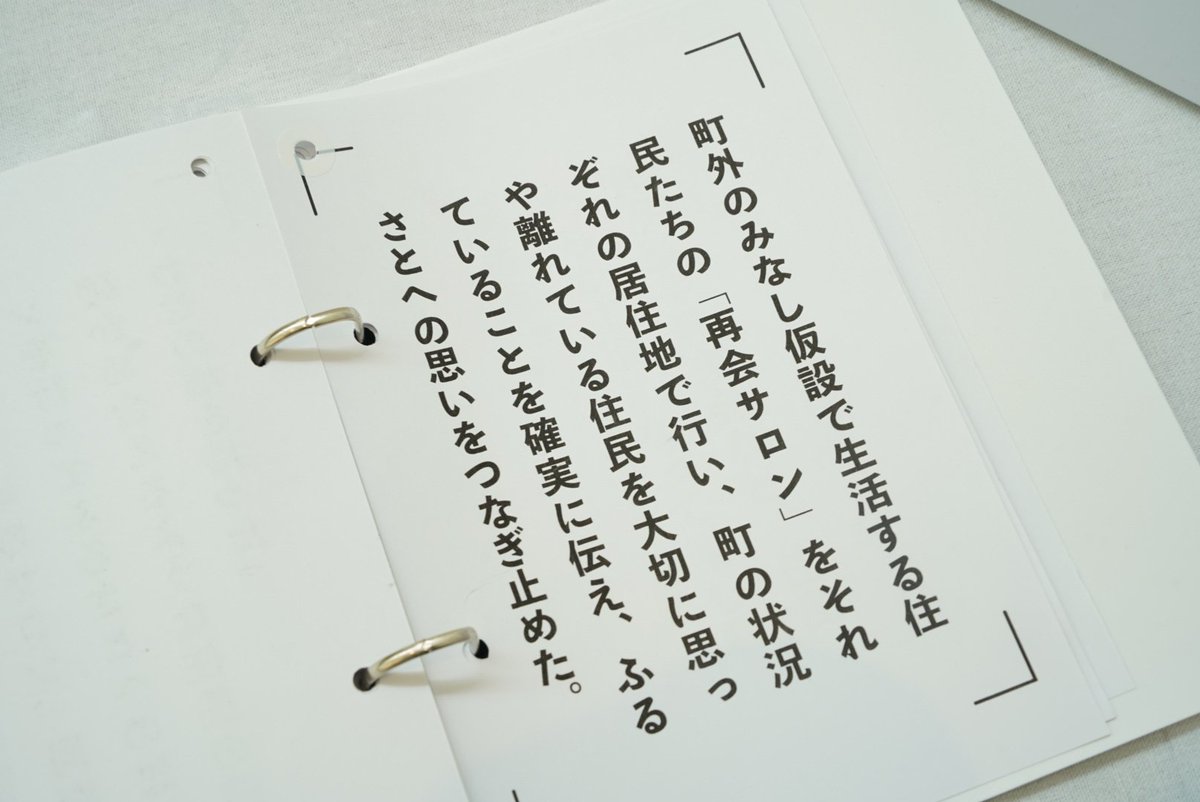 町外のみなし仮設で生活する住
民たちの「再会サロン」をそれ
ぞれの居住地で行い、町の状況
や離れている住民を大切に思っ
ていることを確実に伝え、ふる
さとへの思いをつなぎ止めた。